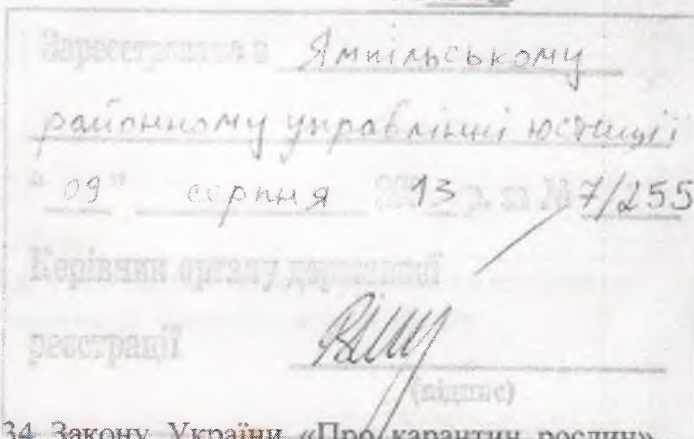 Зареєстровано в Ямпільському
районному управлінні юстиції
"09" серпня 2013 р. за № 7/255
Керівник органу державної
реєстрації
(підпис)
34 Закону України «Про карантин рослин»